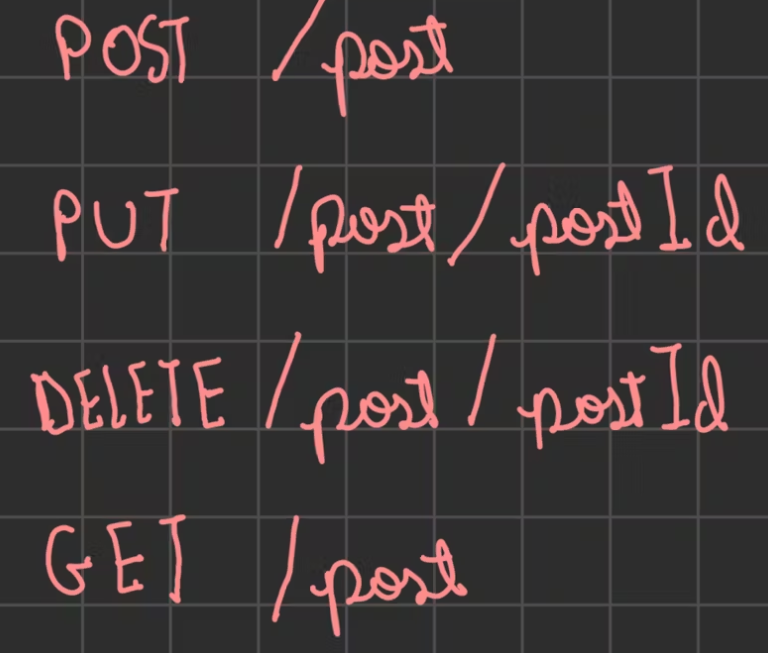 POST /post
PUT /post/postId
DELETE /post/postId
GET /post